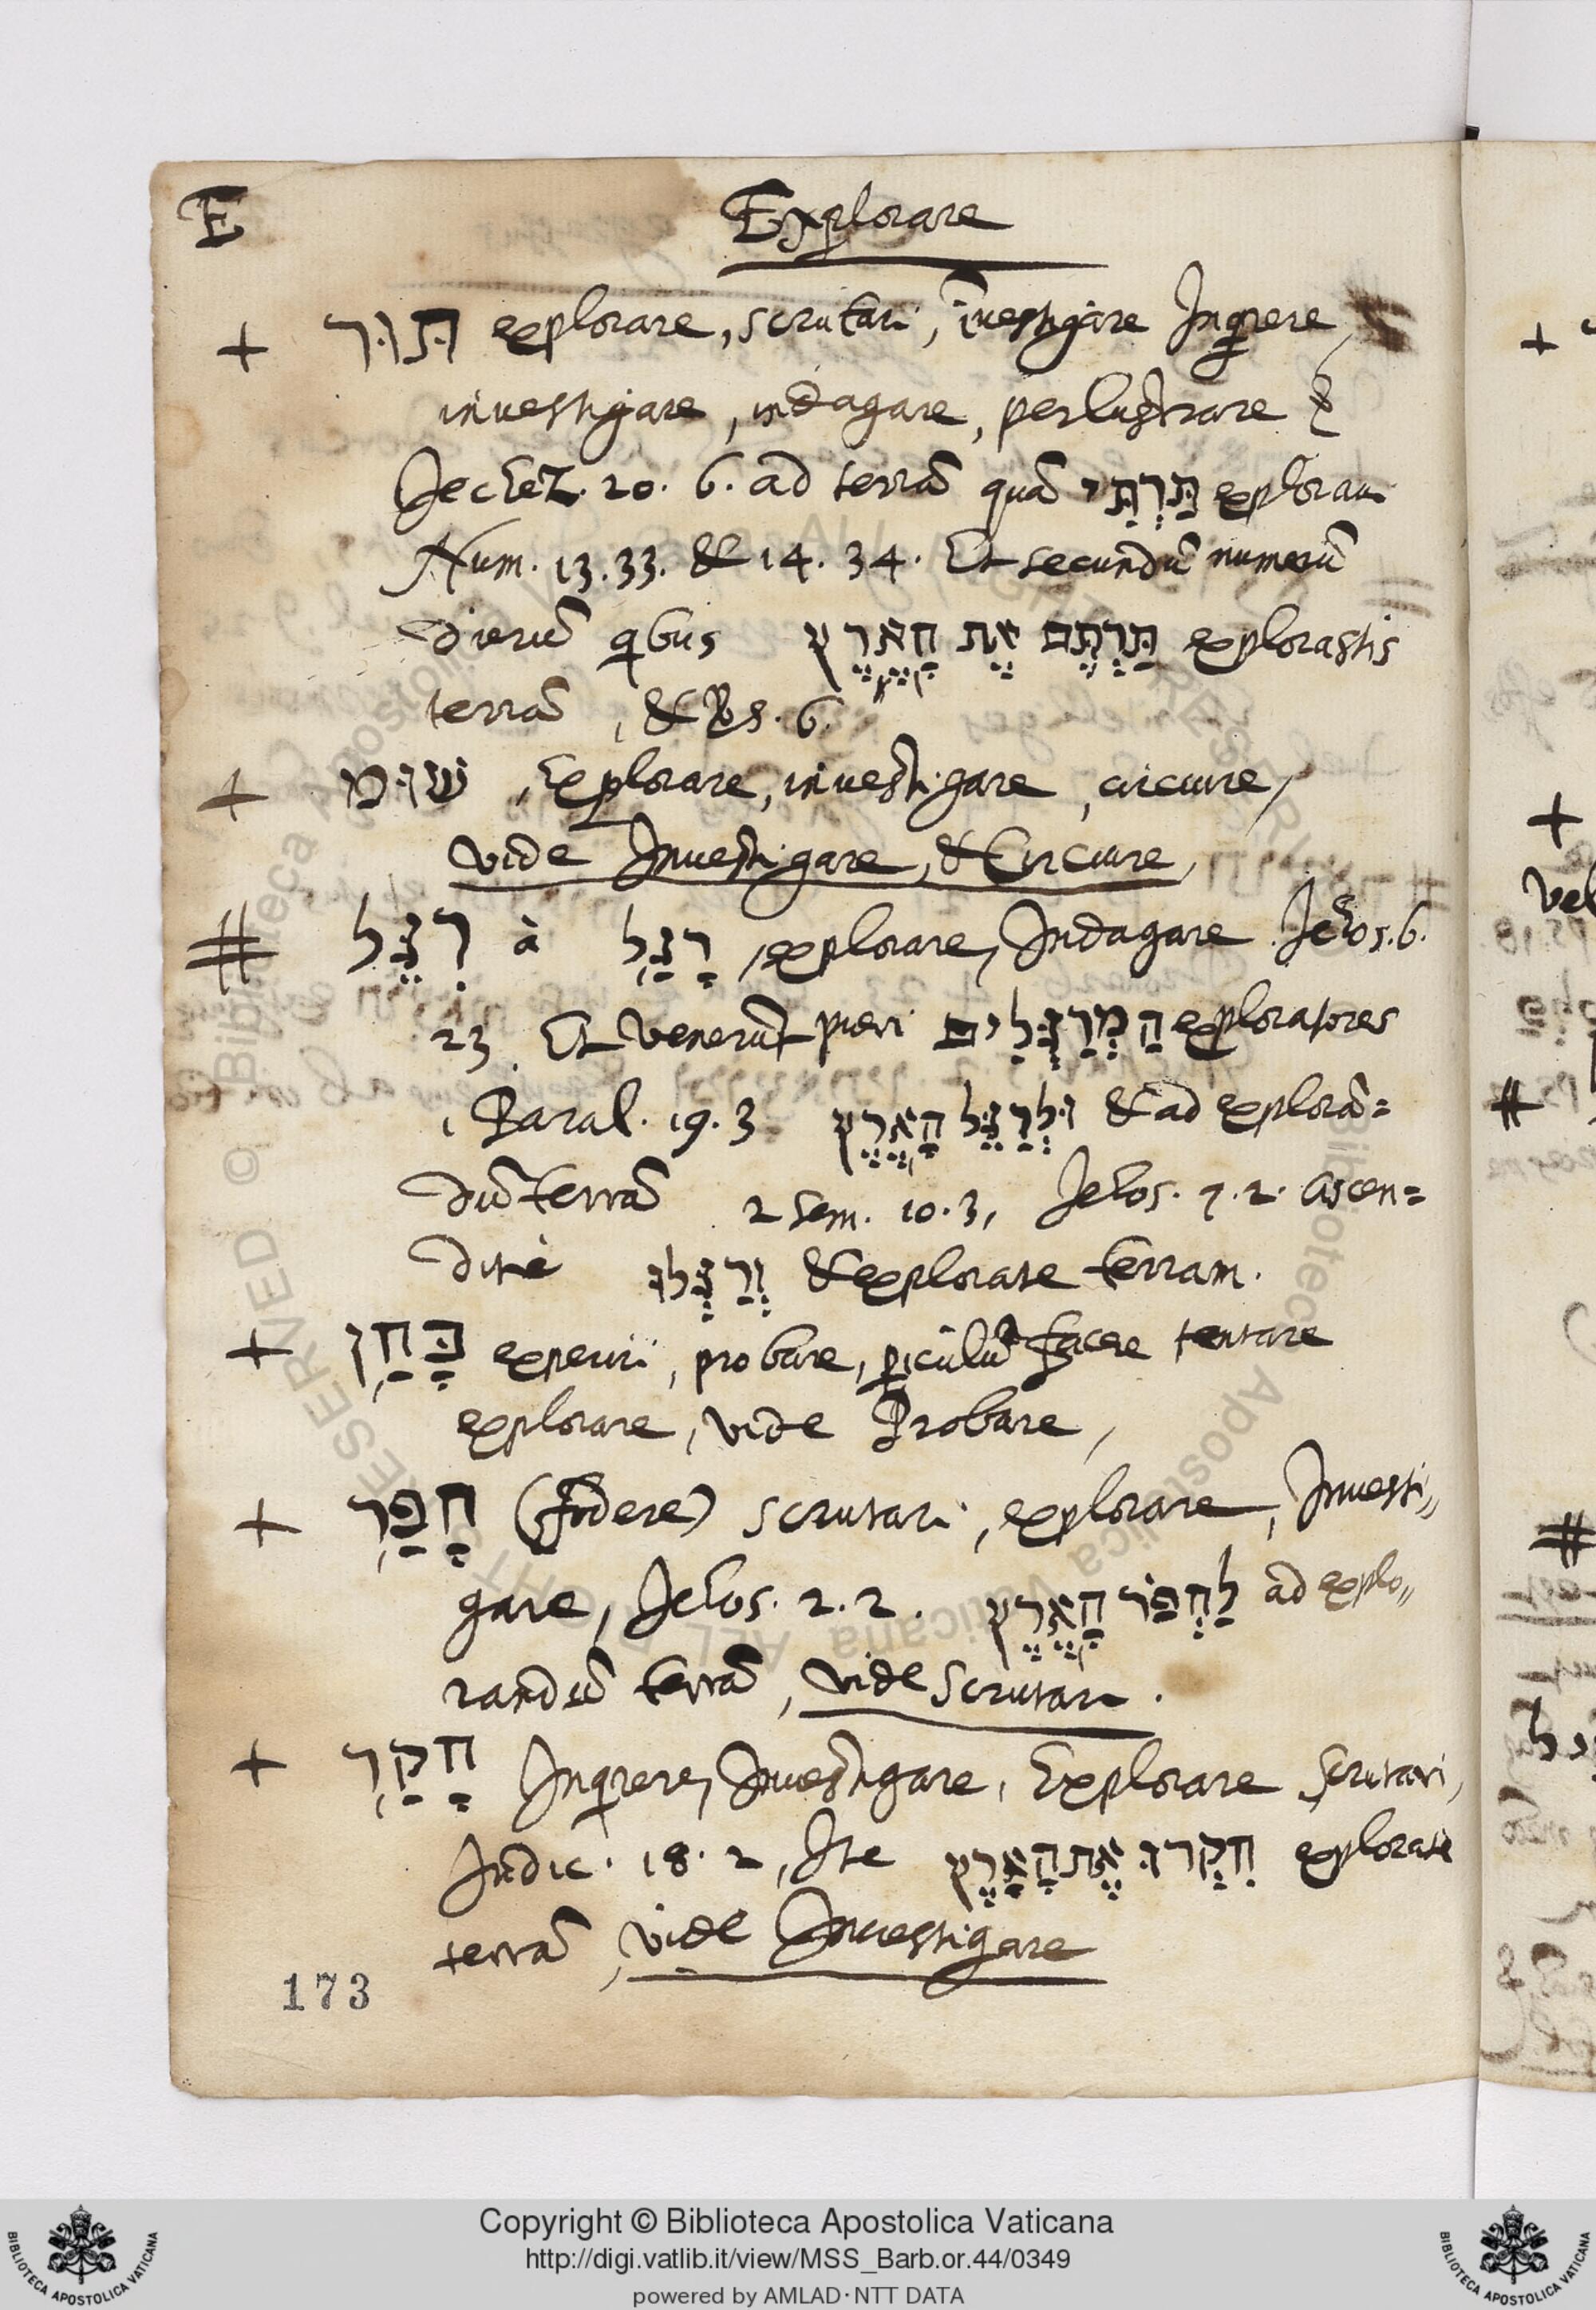 E
Explorare
+ תּוּר explorare, scrutari, īuestigare Inqrere,
inuestigare, indagare, perlustrare &
Jechez. 20. 6. ad terrā quā תַּרְתִּי explorаui
Num. 13. 33. & 14. 34. Et secundū numerū
dierū qibus תַּרְתֶּם אֶת הָאָרֶץ explorastis
terrā, & 6.
+ שׁוּט, Explorare, inuestigare, circuire,
vide Inuestigare, & Circuire,
# רִגֵּל à רָגַל, explorare, Indagare Jehos. 6.
23. Et Venerūt pueri הַמְרַגְּלִים exploratores
1 Paral. 19. 3 וּלְרַגֵּל הָאָרֶץ & ad explorā=
dū terrā 2 Sem. 10. 3, Jehos. 7. 2. Ascen=
dite וְרַגְּלוּ & explorate terram.
+ בָּחַן experiri, probare, piculū facere tentare
explorare, vide Probare,
+ חָפַר (fodere) scrutari, explorare, Inuesti„
gare, Jehos. 2. 2. לַחְפֹּר הָאָרֶץ ad explo„
randū terrā, vide Scrutari.
+ חָקַר Inqrere, Inuestigare, Explorare Scrutari,
Iudic. 18. 2, Ite חִקְרוּ אֶת הָאָרֶץ explorate
terrā, vide Inuestigare
173
Copyright © Biblioteca Apostolica Vaticana
http://digi.vatlib.it/view/MSS_Barb.or.44/0349
powered by AMLAD·NTT DATA
BIBLIOTECA APOSTOLICA VATICANA
BIBLIOTECA APOSTOLICA VATICANA